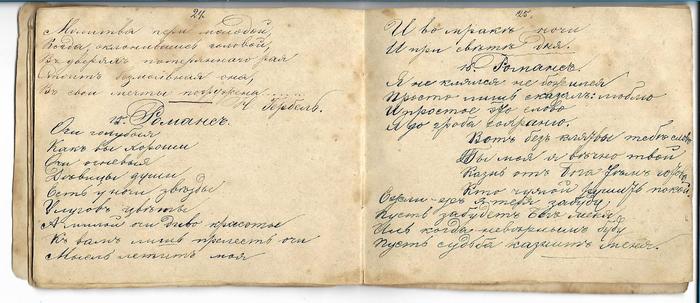 24.
Молитва пери молодой,
Когда, склонившись головой,
Въ дверяхъ потеряннаго рая
Стоитъ безмолвная она,
Въ свои мечты погружена.....
Н. Гербель.
15. Романсъ.
Очи голубыя
Какъ вы хороши
Очи огневыя
Дѣвицы души
Есть у ночи звѣзды
У луговъ цвѣты
А милой очи диво красоты
Къ вамъ лишь прелесть очи
Мысль летитъ моя
25.
И во мракѣ ночи
И при свѣтѣ дня.
16. Романсъ.
Я не клялся не божился
Просто лишь сказалъ: люблю
И простое это слово
Я до гроба сохраню.
Вотъ безъ клятвы тебѣ
Ты моя я вѣчно твой
Казнь отъ Бога тѣмъ
Кто чужой рушитъ покой
Если тебя забуду
Пусть забудетъ Богъ меня
Иль когда невѣрнымъ буду
Пусть судьба казнитъ меня.